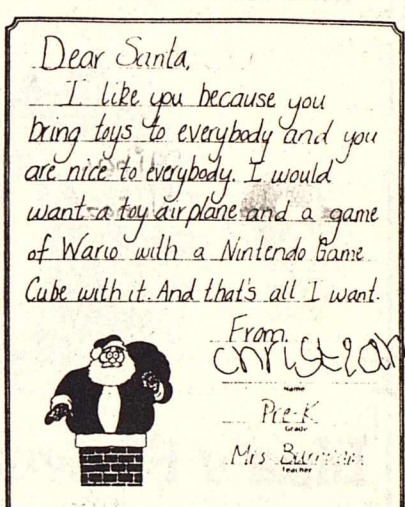 Dear Santa,
I like you because you
bring toys to everybody and you
are nice to everybody. I would
want a toy airplane and a game
of Wario with a Nintendo Game
Cube with it. And that's all I want.
From,
christian
Name
Pre-K
Grade
Mrs
Teacher